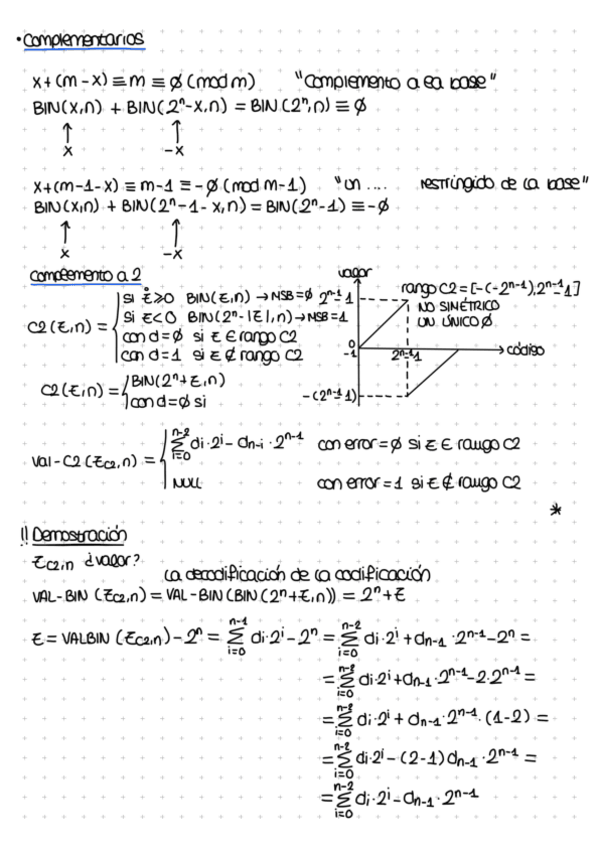 • Complementarios
x+(m-x) ≡ m ≡ ∅ (mod m) "Complemento a la base"
BIN(x,n) + BIN(2ⁿ-x,n) = BIN(2ⁿ,n) ≡ ∅
↑ ↑
x -x
x+(m-1-x) ≡ m-1 ≡ -∅ (mod m-1) "un .... restringido de la base"
BIN(x,n) + BIN(2ⁿ-1-x,n) = BIN(2ⁿ-1) ≡ -∅
↑ ↑
x -x
Complemento a 2
C2(Z,n) =
si Z≥0 BIN(Z,n) → NSB=∅
si Z<0 BIN(2ⁿ-|Z|,n) → NSB=1
con d=∅ si Z ∈ rango C2
con d=1 si Z ∉ rango C2
valor
2ⁿ⁻¹-1
0
-1
2ⁿ⁻¹-1
código
-(2ⁿ⁻¹-1)
rango C2 = [-(-2ⁿ⁻¹), 2ⁿ⁻¹-1]
NO SIMÉTRICO
UN ÚNICO ∅
C2(Z,n) =
BIN(2ⁿ+Z,n)
con d=∅ si
Val-C2(Z_C2,n) =
∑ᵢ₌₀ⁿ⁻² di·2ⁱ - dn-i·2ⁿ⁻¹ con error=∅ si Z ∈ rango C2
NULL con error=1 si Z ∉ rango C2
*
!! Demostración
Z_C2,n ¿valor?
La decodificación de la codificación
VAL-BIN (Z_C2,n) = VAL-BIN(BIN(2ⁿ+Z,n)) = 2ⁿ+Z
Z = VALBIN (Z_C2,n) - 2ⁿ = ∑ᵢ₌₀ⁿ⁻¹ di·2ⁱ - 2ⁿ = ∑ᵢ₌₀ⁿ⁻² di·2ⁱ + dn-1·2ⁿ⁻¹ - 2ⁿ =
= ∑ᵢ₌₀ⁿ⁻² di·2ⁱ + dn-1·2ⁿ⁻¹ - 2·2ⁿ⁻¹ =
= ∑ᵢ₌₀ⁿ⁻² di·2ⁱ + dn-1·2ⁿ⁻¹·(1-2) =
= ∑ᵢ₌₀ⁿ⁻² di·2ⁱ - (2-1)dn-1·2ⁿ⁻¹ =
= ∑ᵢ₌₀ⁿ⁻² di·2ⁱ - dn-1·2ⁿ⁻¹